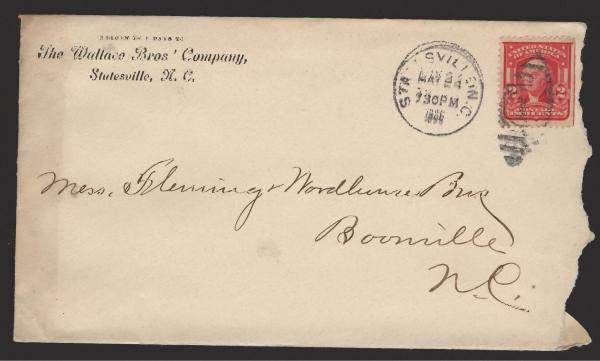 RETURN IN 5 DAYS TO
The Wallace Bros' Company,
Statesville, N. C.
STATESVILLE, N.C.
MAY 24
730PM
UNITED STATES
OF AMERICA
2 2
TWO CENTS
Mess. Fleming & Woodhouse Bros
Boonville
N.C.